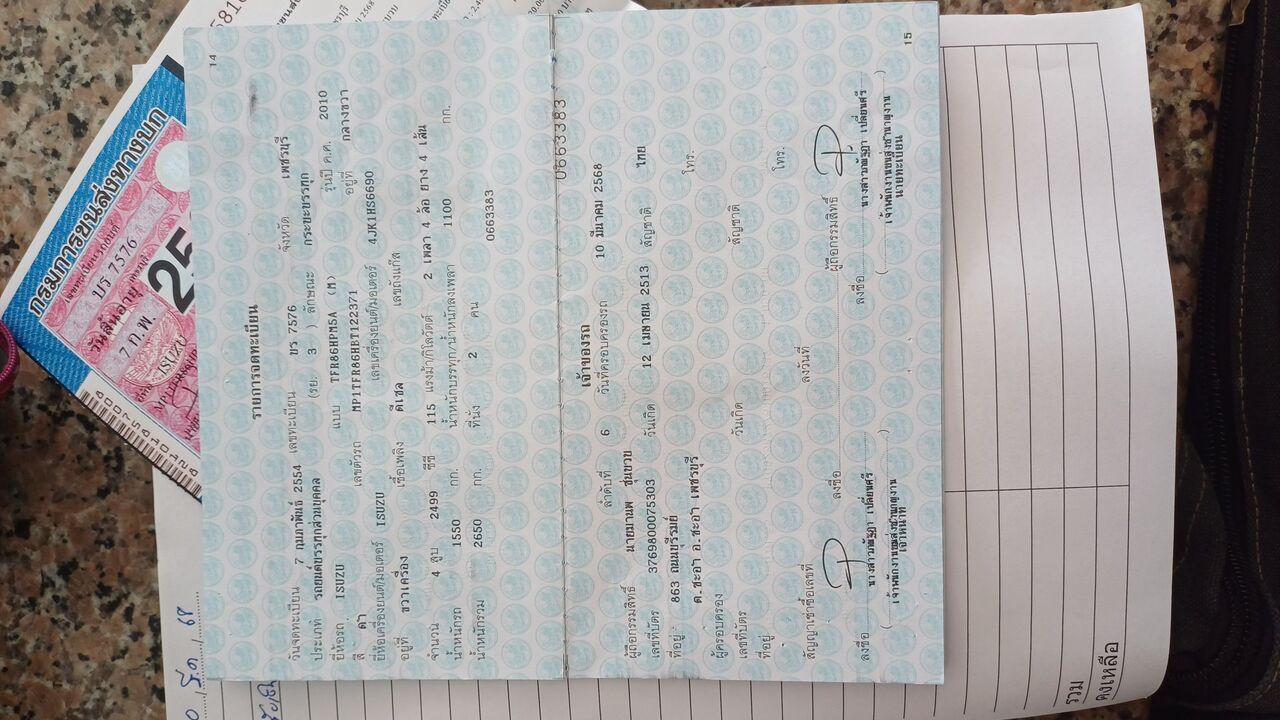 14
รายการจดทะเบียน
วันจดทะเบียน 7 กุมภาพันธ์ 2554 เลขทะเบียน บร 7576 จังหวัด เพชรบุรี
ประเภท รถยนต์บรรทุกส่วนบุคคล (รย. 3 ) ลักษณะ กระบะบรรทุก
ยี่ห้อรถ ISUZU แบบ TFR86HPM5A (M) รุ่นปี ค.ศ. 2010
สี ดำ เลขตัวรถ MP1TFR86HBT122371 อยู่ที่ กลางขวา
ยี่ห้อเครื่องยนต์/มอเตอร์ ISUZU เลขเครื่องยนต์/มอเตอร์ 4JK1HS6690
อยู่ที่ ขวาเครื่อง เชื้อเพลิง ดีเซล เลขถังแก๊ส
จำนวน 4 สูบ 2499 ซีซี 115 แรงม้า/กิโลวัตต์ 2 เพลา 4 ล้อ ยาง 4 เส้น
น้ำหนักรถ 1550 กก. น้ำหนักบรรทุก/น้ำหนักลงเพลา 1100 กก.
น้ำหนักรวม 2650 กก. ที่นั่ง 2 คน
0663383
0663383
เจ้าของรถ
ลำดับที่ 6 วันที่ครอบครองรถ 10 มีนาคม 2568
ผู้ถือกรรมสิทธิ์ นายมานพ ชุ่นบวย
เลขที่บัตร 3769800075303 วันเกิด 12 เมษายน 2513 สัญชาติ ไทย
ที่อยู่ 863 ถนนบุรีรมย์ โทร.
ต.ชะอำ อ.ชะอำ เพชรบุรี
ผู้ครอบครอง
เลขที่บัตร วันเกิด สัญชาติ
ที่อยู่ โทร.
สัญญาเช่าซื้อเลขที่ ลงวันที่
ลงชื่อ ผู้ถือกรรมสิทธิ์
ลงชื่อ ลงชื่อ
เจ้าพนักงานขนส่งชำนาญงาน เจ้าพนักงานขนส่งชำนาญงาน
เจ้าหน้าที่ นายทะเบียน
15
กรมการขนส่งทางบก
เลขทะเบียนรถยนต์
บร 7576
วันสิ้นอายุ
7 ก.พ.
25
ISUZU
รวม
คงเหลือ